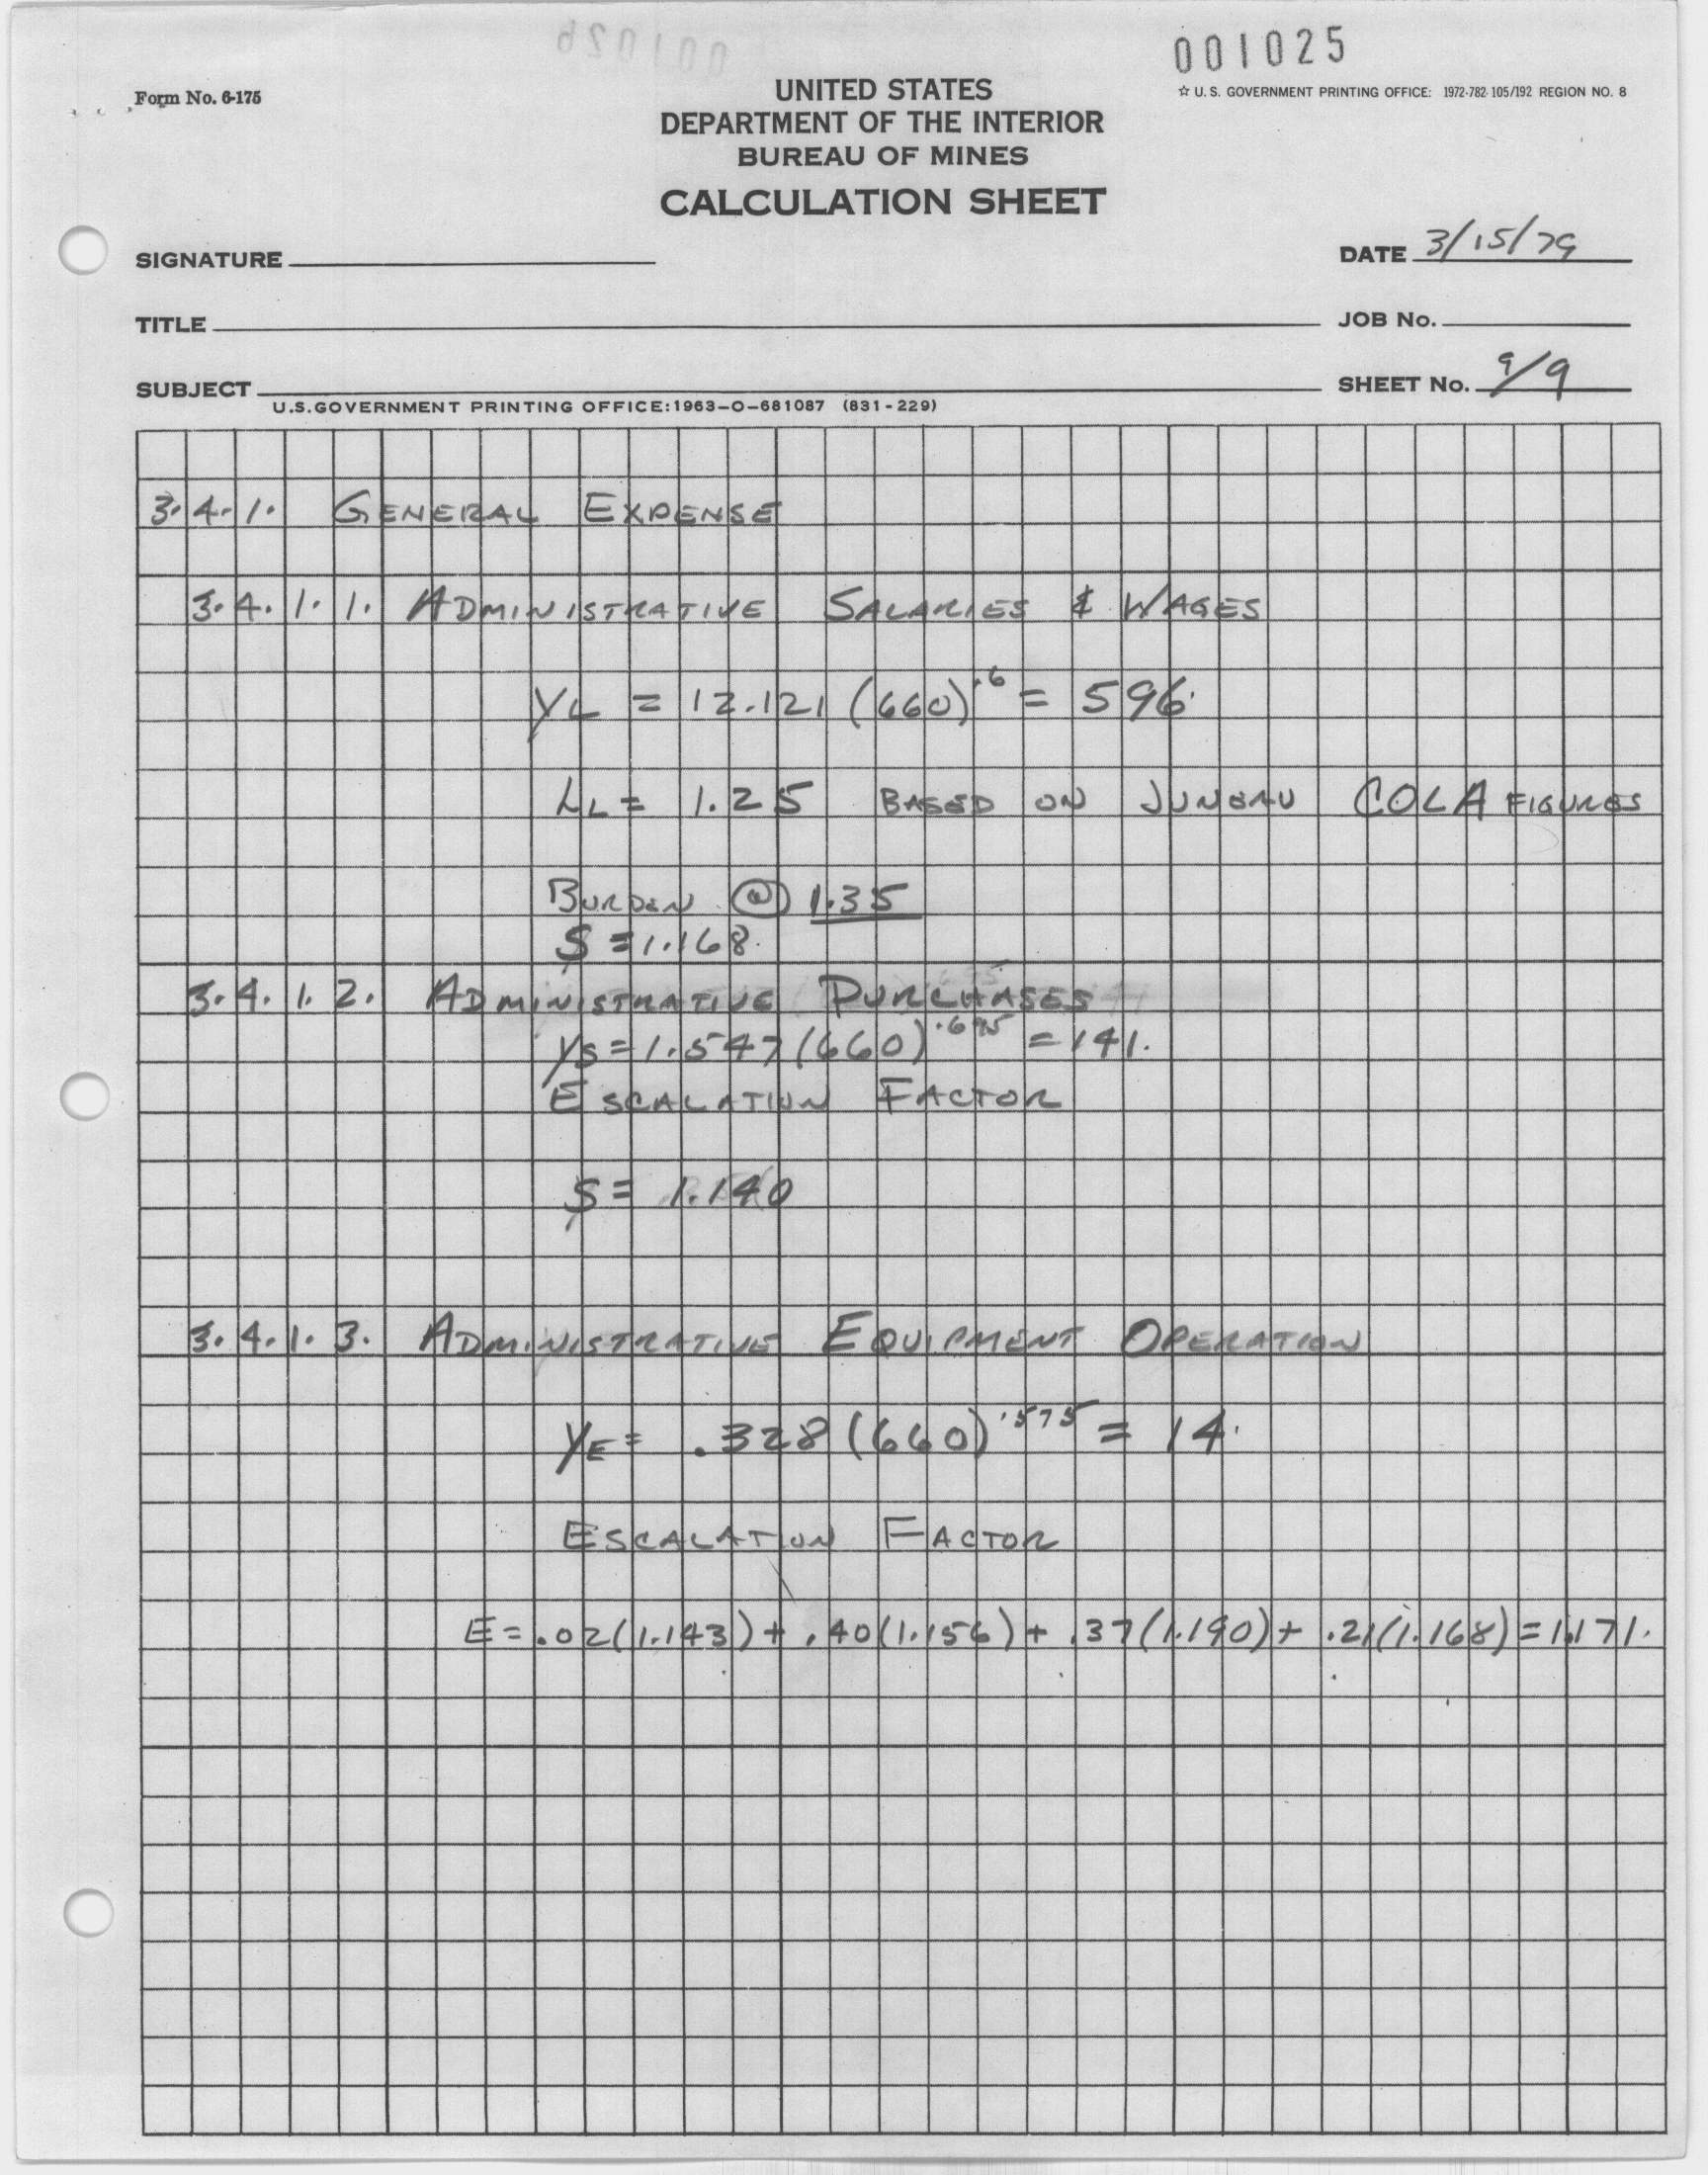 001025
Form No. 6-175
☆ U. S. GOVERNMENT PRINTING OFFICE: 1972-782-105/192 REGION NO. 8
UNITED STATES
DEPARTMENT OF THE INTERIOR
BUREAU OF MINES
CALCULATION SHEET
SIGNATURE
DATE 3/15/79
TITLE
JOB No.
SUBJECT
SHEET No. 9/9
U.S.GOVERNMENT PRINTING OFFICE:1963-O-681087 (831-229)
3.4.1. GENERAL EXPENSE
3.4.1.1. ADMINISTRATIVE SALARIES & WAGES
YL = 12.121 (660)^.6 = 596.
LL = 1.25 BASED ON JUNEAU COLA FIGURES
BURDEN @ 1.35
S = 1.168.
3.4.1.2. ADMINISTRATIVE PURCHASES
YS = 1.547 (660)^.695 = 141.
ESCALATION FACTOR
S = 1.140
3.4.1.3. ADMINISTRATIVE EQUIPMENT OPERATION
YE = .328 (660)^.575 = 14.
ESCALATION FACTOR
E = .02(1.143) + .40(1.156) + .37(1.190) + .21(1.168) = 1.171.